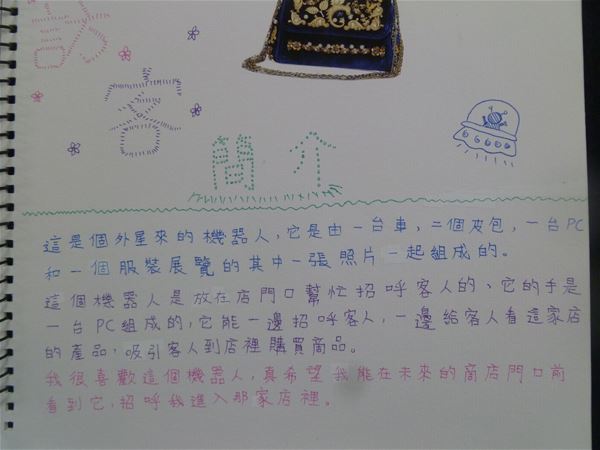 簡介
這是個外星來的機器人,它是由一台車,二個皮包,一台PC
和一個服裝展覽的其中一張照片一起組成的。
這個機器人是放在店門口幫忙招呼客人的、它的手是
一台PC組成的,它能一邊招呼客人,一邊給客人看這家店
的產品,吸引客人到店裡購買商品。
我很喜歡這個機器人,真希望我能在未來的商店門口前
看到它,招呼我進入那家店裡。